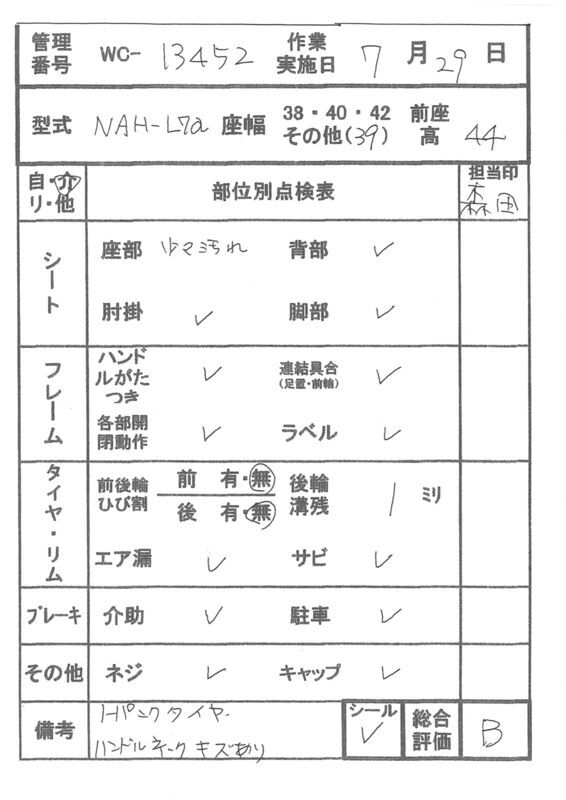 管理番号 WC- 13452 作業実施日 7月29日
型式 NAH-L7a 座幅 38・40・42 その他(39) 前座高 44
自・介 リ・他 部位別点検表 担当印 森田
シート 座部 汚れ 背部 ✓
肘掛 ✓ 脚部 ✓
フレーム ハンドルがたつき ✓ 連結具合(足置・前輪) ✓
各部開閉動作 ✓ ラベル ✓
タイヤ・リム 前後輪ひび割 前 有・無 後輪溝残 1 ミリ
後 有・無
エア漏 ✓ サビ ✓
ブレーキ 介助 ✓ 駐車 ✓
その他 ネジ ✓ キャップ ✓
備考 ノーパンクタイヤ. シール ✓ 総合評価 B
ハンドル キズあり